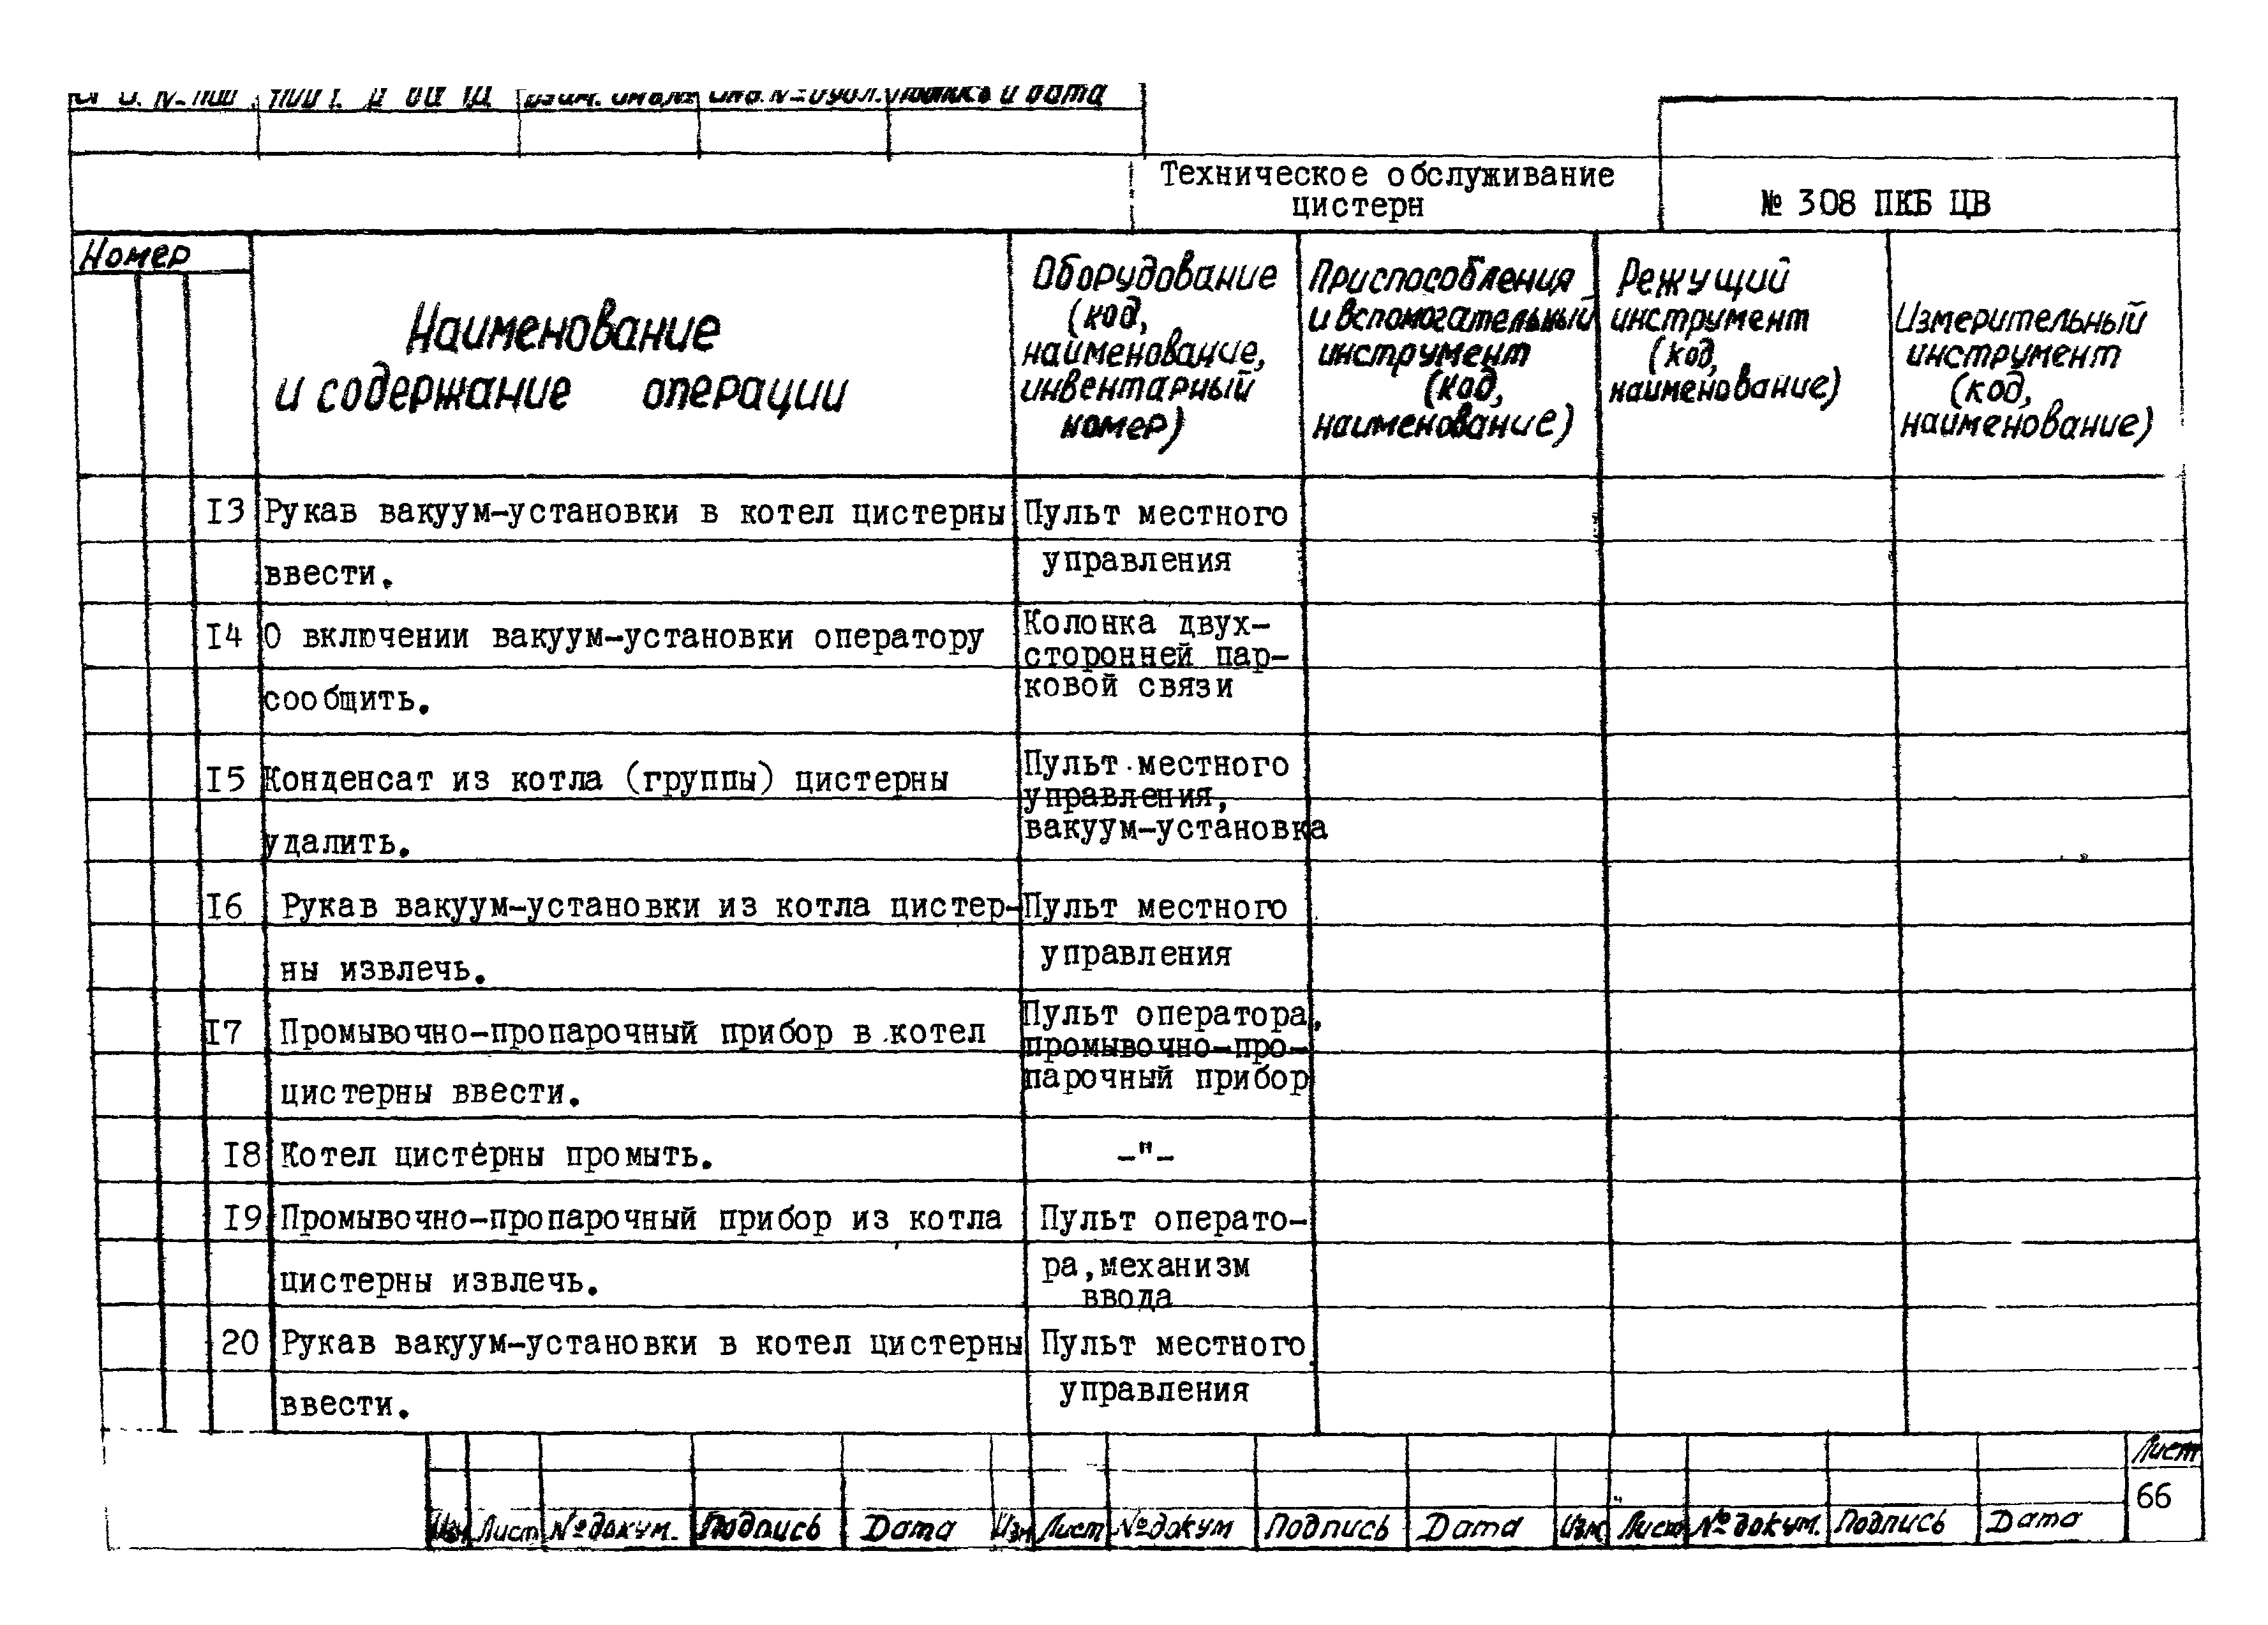 и дата
Техническое обслуживание
цистерн
№ 308 ПКБ ЦВ
Номер
Наименование
и содержание операции
Оборудование
(код,
наименование,
инвентарный
номер)
Приспособления
и вспомогательный
инструмент
(код,
наименование)
Режущий
инструмент
(код,
наименование)
Измерительный
инструмент
(код,
наименование)
I3 Рукав вакуум-установки в котел цистерны
ввести.
Пульт местного
управления
I4 О включении вакуум-установки оператору
сообщить.
Колонка двух-
сторонней пар-
ковой связи
I5 Конденсат из котла (группы) цистерны
удалить.
Пульт местного
управления,
вакуум-установка
I6 Рукав вакуум-установки из котла цистер-
ны извлечь.
Пульт местного
управления
I7 Промывочно-пропарочный прибор в котел
цистерны ввести.
Пульт оператора,
промывочно-про-
парочный прибор
I8 Котел цистерны промыть.
-"-
I9 Промывочно-пропарочный прибор из котла
цистерны извлечь.
Пульт операто-
ра, механизм
ввода
20 Рукав вакуум-установки в котел цистерны
ввести.
Пульт местного
управления
Изм Лист № докум. Подпись Дата Изм Лист № докум Подпись Дата Изм Лист № докум. Подпись Дата
Лист
66